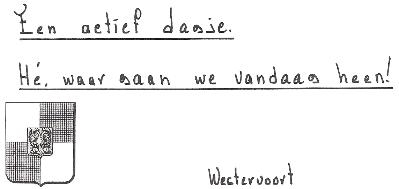 Een actief dagje.
Hé, waar gaan we vandaag heen!
Westervoort